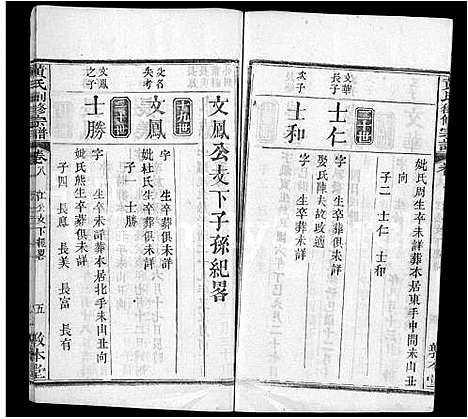 妣氏周生卒未詳葬本居東手申間未山丑
向
子二 士仁 士和
三十世
文華
長子
士仁
字 生卒葬俱未詳
娶氏陳夫故改適
次子
士和
字 生卒葬俱未詳
文鳳公支下子孫紀畧
十九世
父名
失考
文鳳
字 生卒葬俱未詳
妣杜氏生卒葬俱未詳
子一 士勝
三十世
文鳳
之子
士勝
字 生卒未詳葬本居北手未山丑向
妣氏熊生卒葬俱未詳
子四 長鳳 長美 長富 長有
黃氏創修宗譜
卷八
五
敦本堂